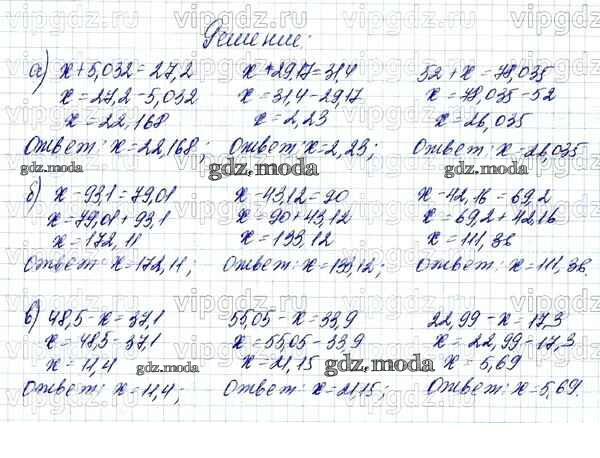 Решение:
а) x+5,032=27,2 x+29,17=31,4 52+x=78,035
x=27,2-5,032 x=31,4-29,17 x=78,035-52
x=22,168 x=2,23 x=26,035
Ответ: x=22,168; Ответ: x=2,23; Ответ: x=26,035
gdz.moda gdz.moda gdz.moda
б) x-93,1=79,01 x-43,12=90 x-42,16=69,2
x=79,01+93,1 x=90+43,12 x=69,2+42,16
x=172,11 x=133,12 x=111,36
Ответ: x=172,11; Ответ: x=133,12; Ответ: x=111,36.
в) 48,5-x=37,1 55,05-x=33,9 22,99-x=17,3
x=48,5-37,1 x=55,05-33,9 x=22,99-17,3
x=11,4 gdz.moda x=21,15 gdz.moda x=5,69
Ответ: x=11,4; Ответ: x=21,15; Ответ: x=5,69.
vipgdz.ru vipgdz.ru vipgdz.ru